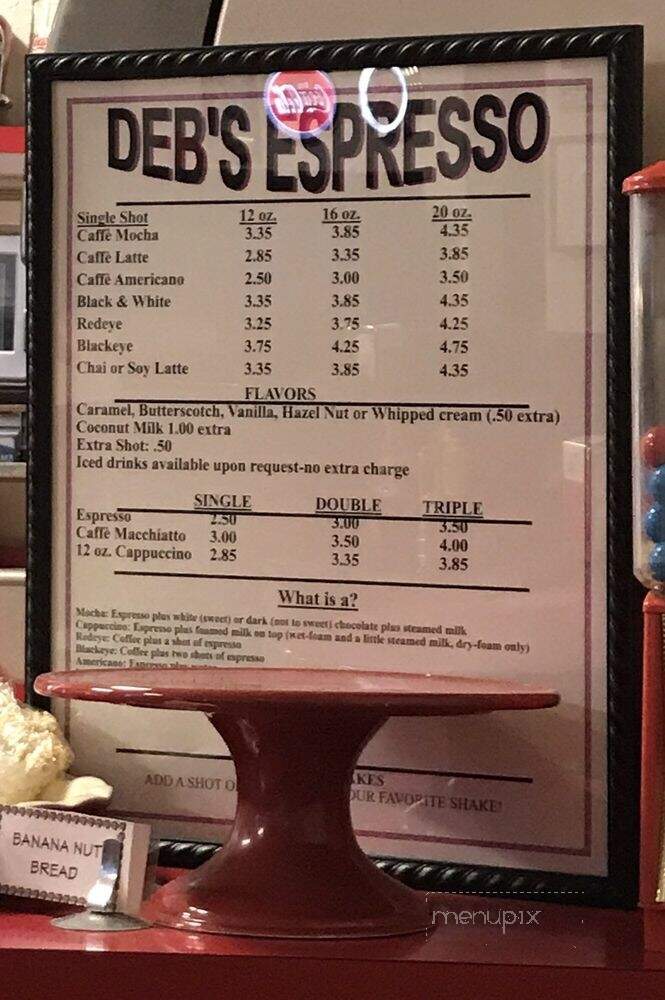 DEB'S ESPRESSO
Single Shot 12 oz. 16 oz. 20 oz.
Caffè Mocha 3.35 3.85 4.35
Caffè Latte 2.85 3.35 3.85
Caffè Americano 2.50 3.00 3.50
Black & White 3.35 3.85 4.35
Redeye 3.25 3.75 4.25
Blackeye 3.75 4.25 4.75
Chai or Soy Latte 3.35 3.85 4.35
FLAVORS
Caramel, Butterscotch, Vanilla, Hazel Nut or Whipped cream (.50 extra)
Coconut Milk 1.00 extra
Extra Shot: .50
Iced drinks available upon request-no extra charge
SINGLE DOUBLE TRIPLE
Espresso 2.50 3.00 3.50
Caffè Macchiatto 3.00 3.50 4.00
12 oz. Cappuccino 2.85 3.35 3.85
What is a?
Mocha: Espresso plus white (sweet) or dark (not to sweet) chocolate plus steamed milk
Cappuccino: Espresso plus foamed milk on top (wet-foam and a little steamed milk, dry-foam only)
Redeye: Coffee plus a shot of espresso
Blackeye: Coffee plus two shots of espresso
Americano: Espresso plus water
ADD A SHOT O
FAVORITE SHAKE!
BANANA NUT
BREAD
menupix